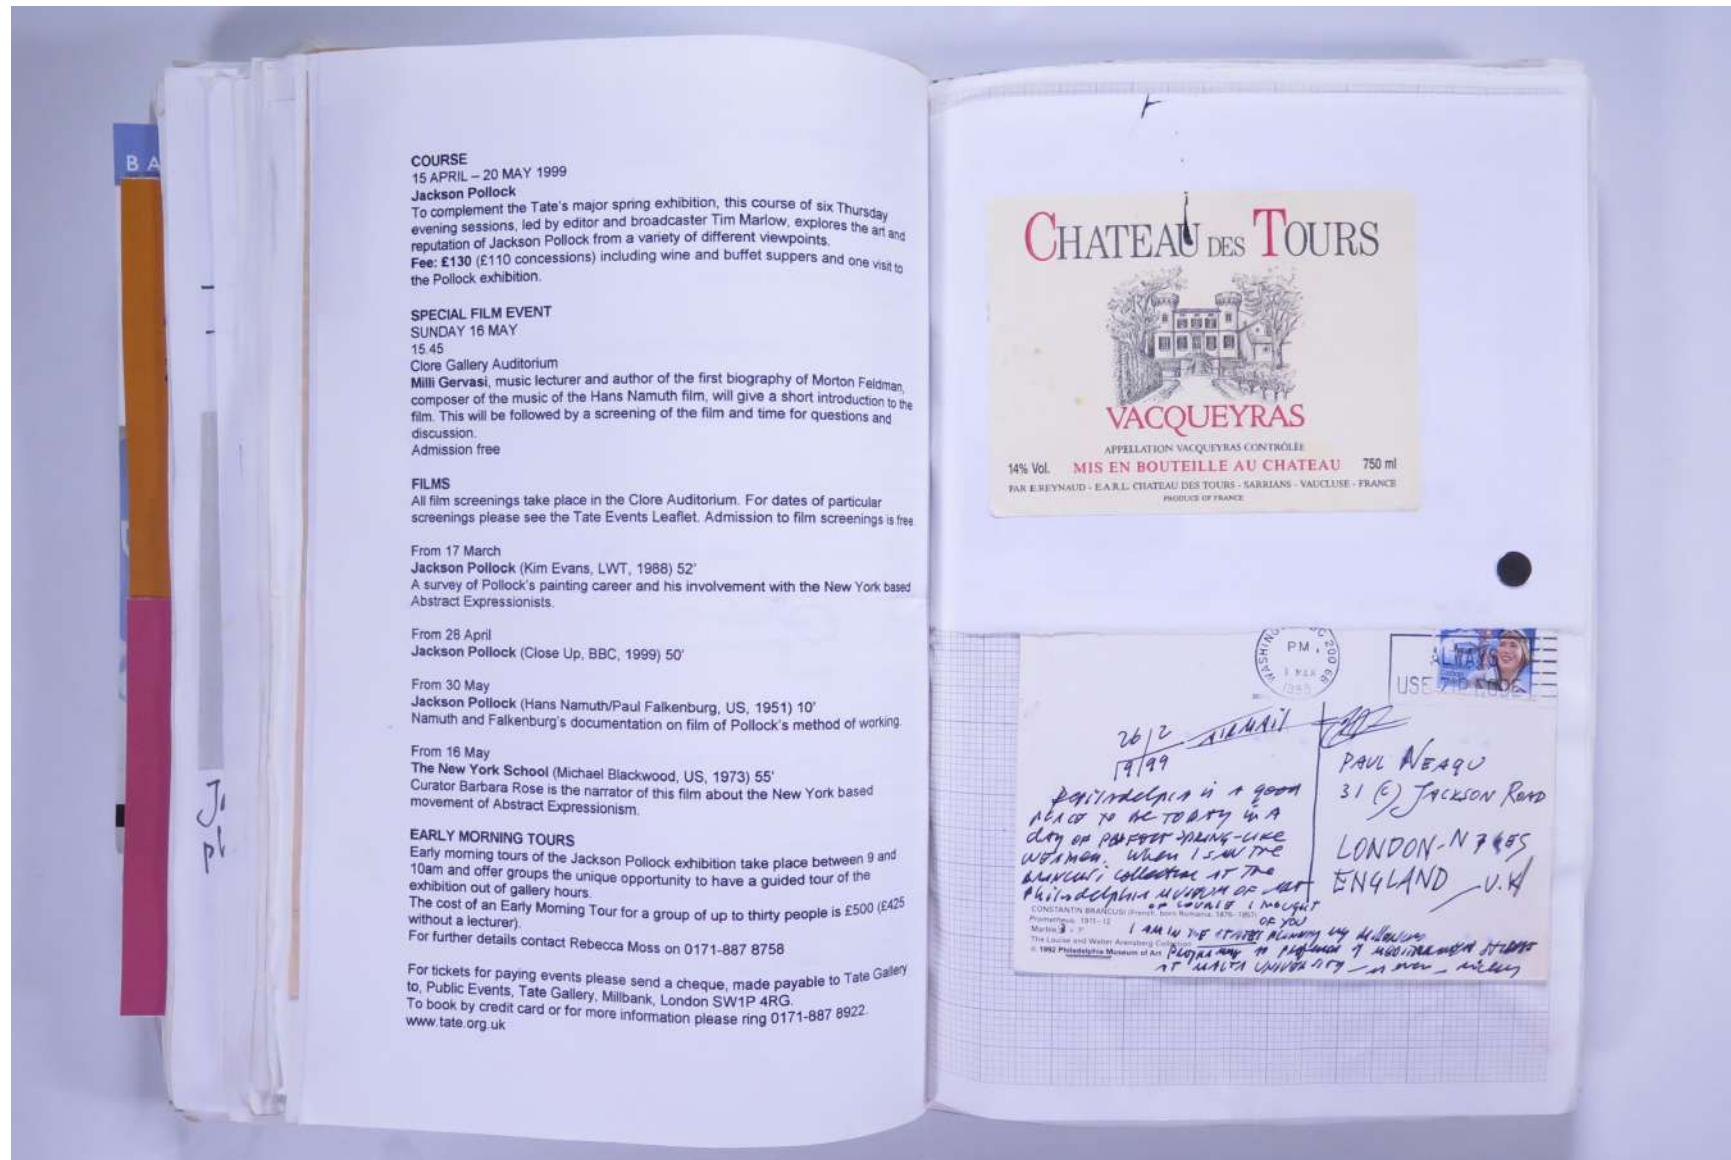 BA
COURSE
15 APRIL – 20 MAY 1999
Jackson Pollock
To complement the Tate's major spring exhibition, this course of six Thursday
evening sessions, led by editor and broadcaster Tim Marlow, explores the art and
reputation of Jackson Pollock from a variety of different viewpoints.
Fee: £130 (£110 concessions) including wine and buffet suppers and one visit to
the Pollock exhibition.
SPECIAL FILM EVENT
SUNDAY 16 MAY
15.45
Clore Gallery Auditorium
Milli Gervasi, music lecturer and author of the first biography of Morton Feldman,
composer of the music of the Hans Namuth film, will give a short introduction to the
film. This will be followed by a screening of the film and time for questions and
discussion.
Admission free
FILMS
All film screenings take place in the Clore Auditorium. For dates of particular
screenings please see the Tate Events Leaflet. Admission to film screenings is free
From 17 March
Jackson Pollock (Kim Evans, LWT, 1988) 52'
A survey of Pollock's painting career and his involvement with the New York based
Abstract Expressionists.
From 28 April
Jackson Pollock (Close Up, BBC, 1999) 50'
From 30 May
Jackson Pollock (Hans Namuth/Paul Falkenburg, US, 1951) 10'
Namuth and Falkenburg's documentation on film of Pollock's method of working.
From 16 May
The New York School (Michael Blackwood, US, 1973) 55'
Curator Barbara Rose is the narrator of this film about the New York based
movement of Abstract Expressionism.
EARLY MORNING TOURS
Early morning tours of the Jackson Pollock exhibition take place between 9 and
10am and offer groups the unique opportunity to have a guided tour of the
exhibition out of gallery hours.
The cost of an Early Morning Tour for a group of up to thirty people is £500 (£425
without a lecturer).
For further details contact Rebecca Moss on 0171-887 8758
For tickets for paying events please send a cheque, made payable to Tate Gallery
to, Public Events, Tate Gallery, Millbank, London SW1P 4RG.
To book by credit card or for more information please ring 0171-887 8922.
www.tate.org.uk
CHATEAU DES TOURS
VACQUEYRAS
APPELLATION VACQUEYRAS CONTRÔLÉE
14% Vol. MIS EN BOUTEILLE AU CHATEAU 750 ml
PAR E.REYNAUD - E.A.R.L. CHATEAU DES TOURS - SARRIANS - VAUCLUSE - FRANCE
PRODUCE OF FRANCE
WASHINGTON DC 200 66
PM
ALWAYS
USE ZIP CODE
26/2
1999
AIRMAIL
Philadelphia is a good
place to be today in a
day of perfect spring-like
When I saw the
Brancusi collection at the
Philadelphia Museum of Art
of course I thought
of you
I am in the States planning my
at Malta University - as ever -
PAUL NEAGU
31 (c) JACKSON ROAD
LONDON - N7 6ES
ENGLAND U.K
CONSTANTIN BRANCUSI (French, born Romania, 1876–1957)
Prometheus, 1911–12
Marble
The Louise and Walter Arensberg Collection
© 1992 Philadelphia Museum of Art